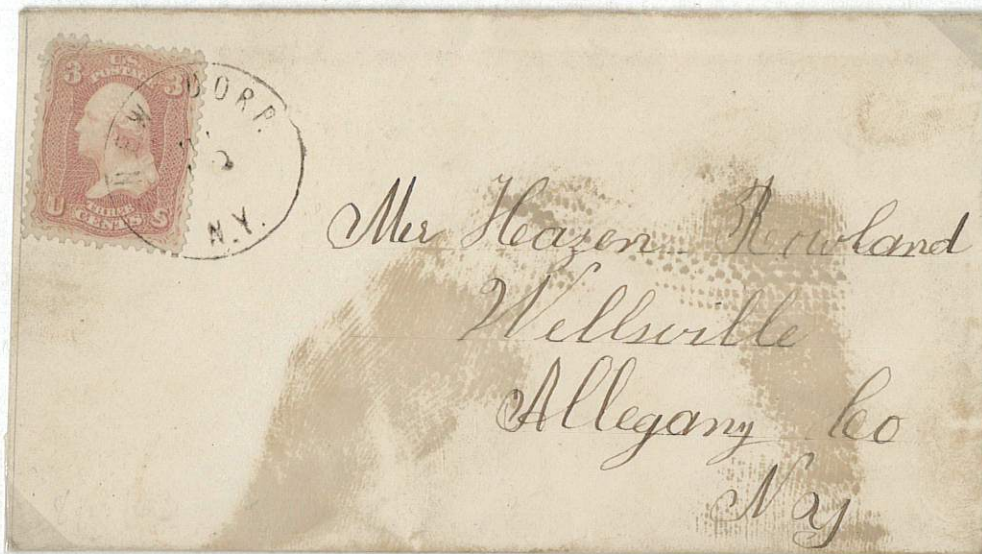 3 U.S. 3
POSTAGE
U THREE S
CENTS
NEW CORP.
N.Y.
Mr Hazen Rowland
Wellsville
Allegany Co
Ny